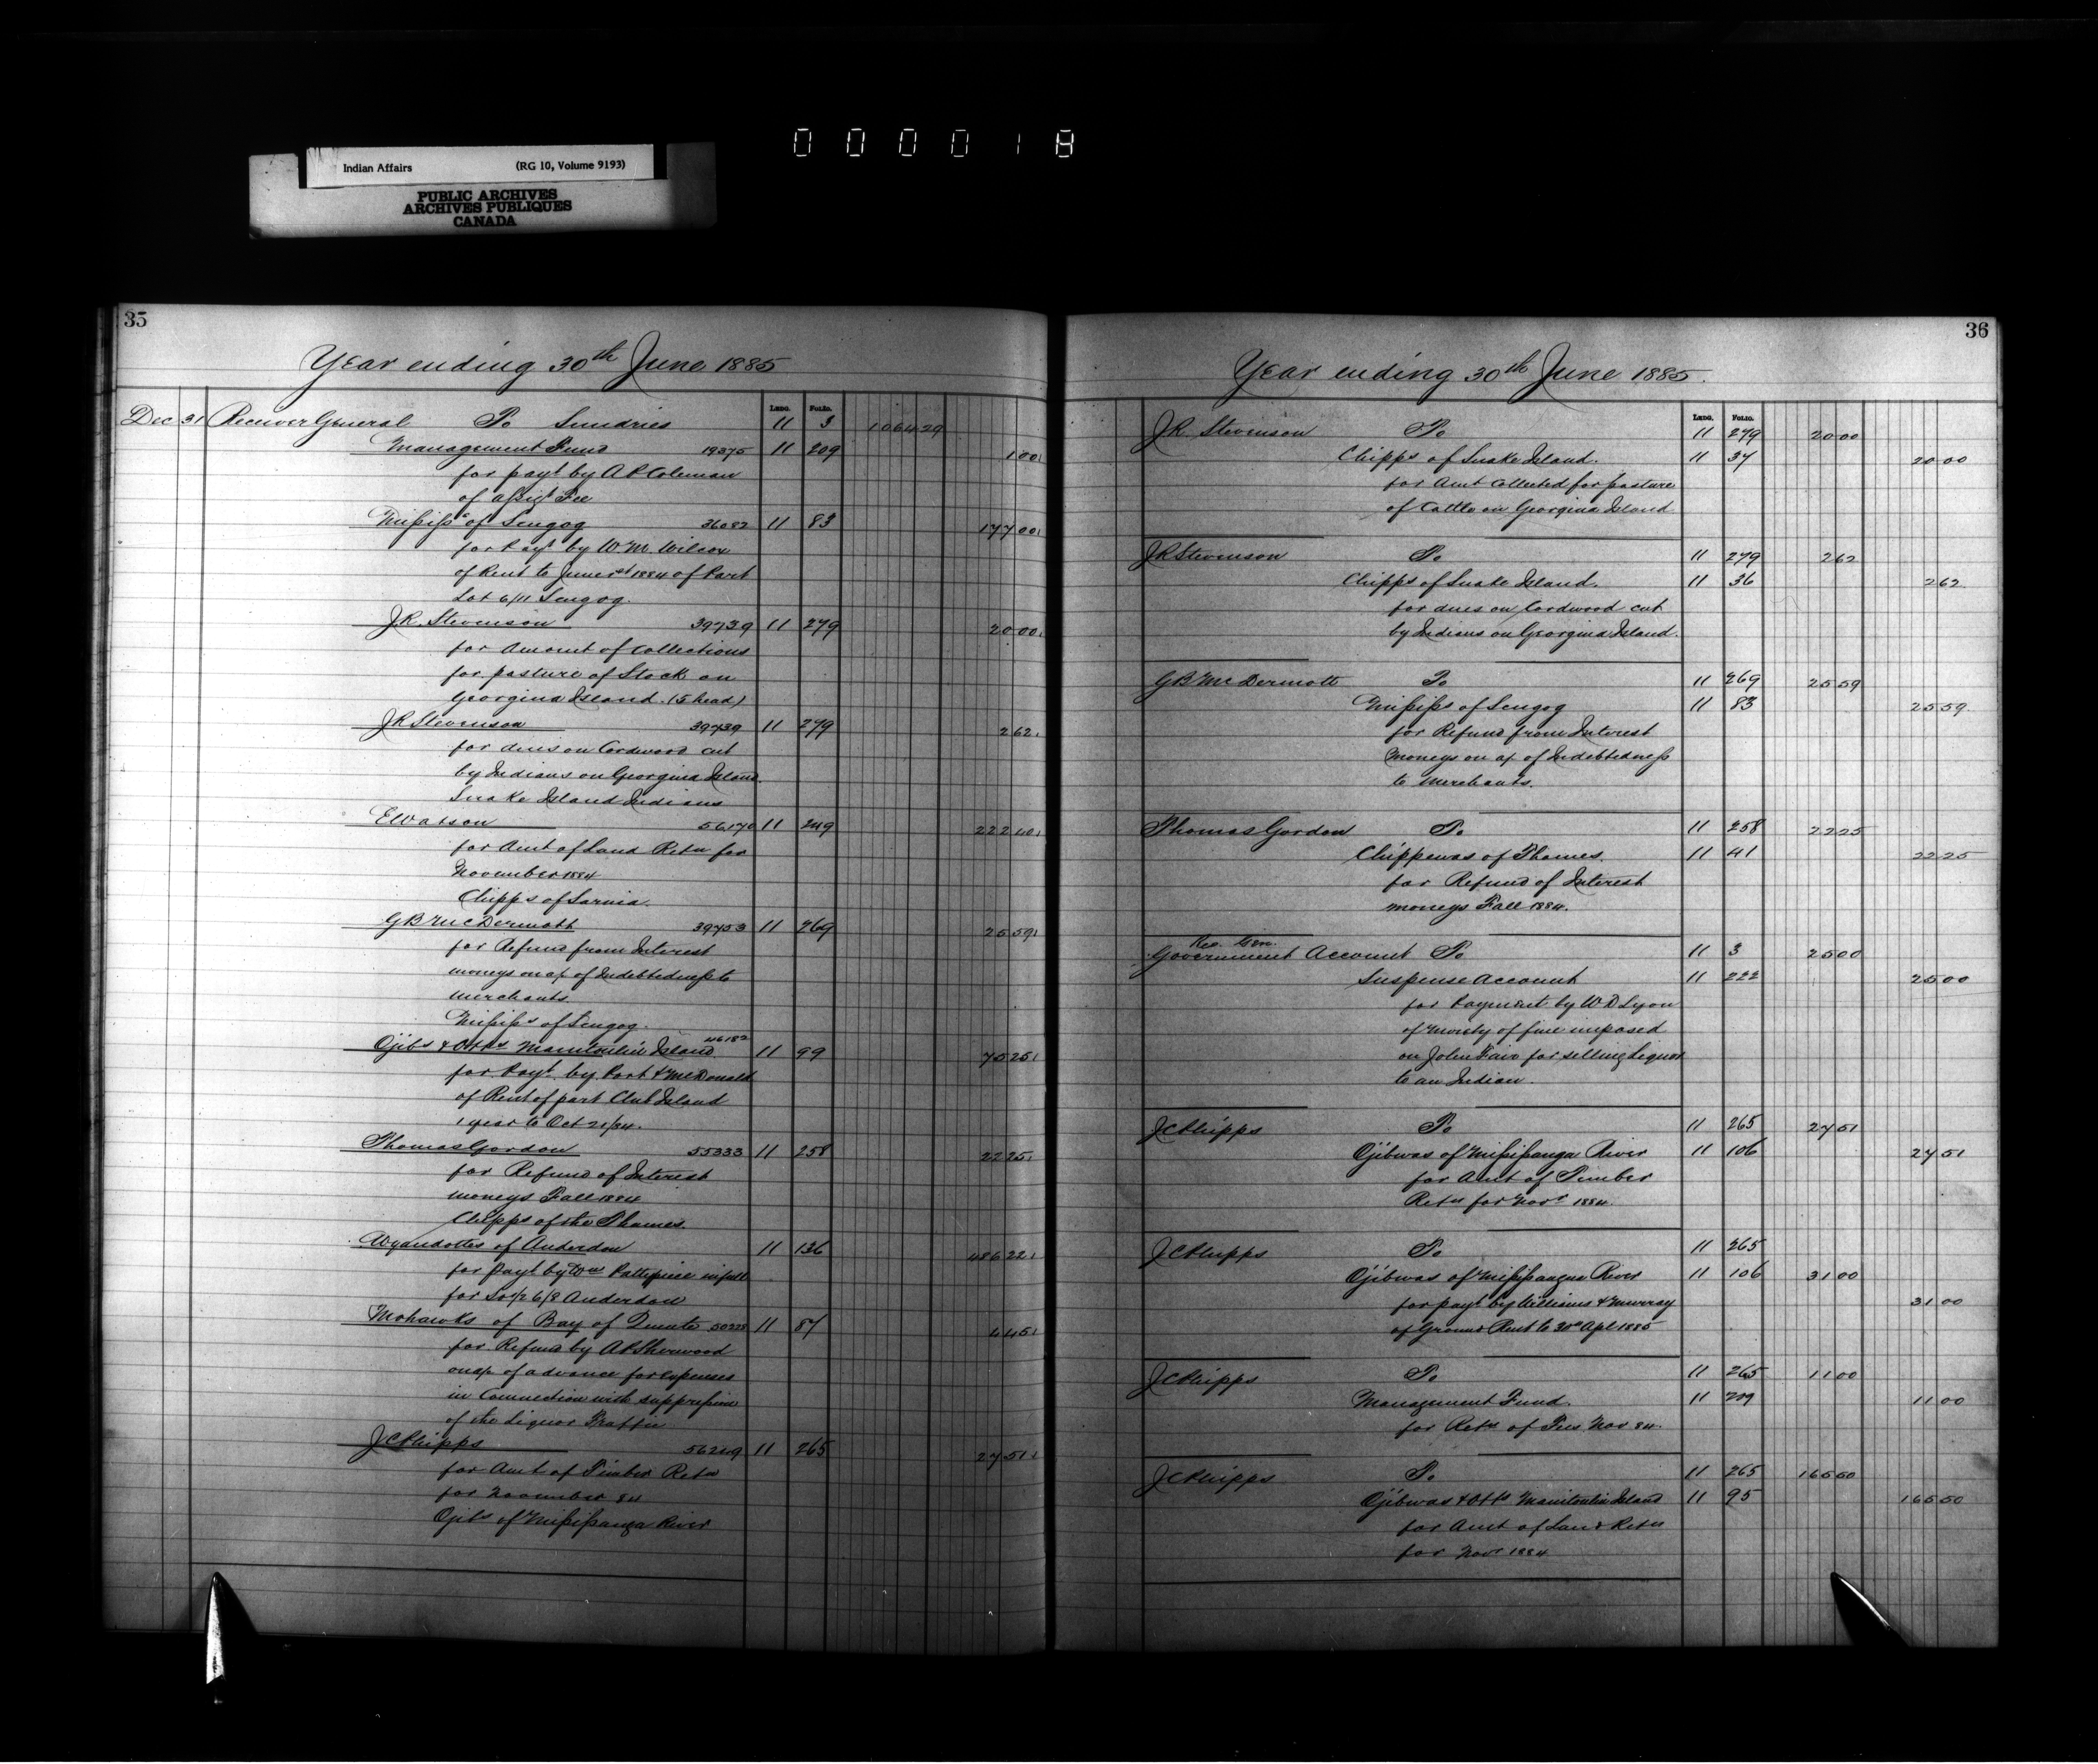 0 0 0 0 1 8
Indian Affairs (RG 10, Volume 9193)
PUBLIC ARCHIVES
ARCHIVES PUBLIQUES
CANADA
35
Year ending 30th June 1885
Ledg. Folio.
Dec 31 Receiver General To Sundries 11 3 1064 29
Management Fund 19375 11 209 1 00
for payt by A P Coleman
of assigt Fee
Mississs of Scugog 36082 11 83 177 00
for Payt by W. M. Wilcox
of Rent to June 1884 of Part
Lot 6/11 Scugog.
J R. Stevenson 39739 11 279 20 00
for Amount of Collections
for pasture of Stock on
Georgina Island. (5 head)
J R Stevenson 39739 11 279 2 62
for dues on Cordwood cut
by Indians on Georgina Island
Snake Island Indians
E Watson 56170 11 249 222 40
for Amt of Land Retn for
November 1884
Chipps of Sarnia.
G B McDermott 39753 11 269 25 59
for Refund from Interest
moneys on a/c of Indebtedness to
merchants
Mississs of Scugog.
Ojibs & Otts Manitoulin Island 46182 11 99 75 25
for Payt by Port & McDonald
of Rent of part Club Island
1 year to Oct 21/84.
Thomas Gordon 55333 11 258 22 25
for Refund of Interest
moneys Fall 1884
Chipps of the Thames.
Wyandottes of Anderdon 11 136 486 22
for payt by in full
for 6/8 Anderdon
Mohawks of Bay of Quinte 11 87 4 45
for Refund by A P Sherwood
on a/c of advance for expenses
in Connection with suppression
of the Liquor Traffic
J C Phipps 56249 11 265 27 51
for Amt of Timber Retn
for November 84
Ojibs of Mississauga River
36
Year ending 30th June 1885.
Ledg. Folio.
J R. Stevenson To 11 279 20 00
Chipps of Snake Island. 11 37 20 00
for Amt Collected for pasture
of Cattle on Georgina Island
J R Stevenson To 11 279 2 62
Chipps of Snake Island. 11 36 2 62
for dues on Cordwood cut
by Indians on Georgina Island.
G B McDermott To 11 269 25 59
Mississs of Scugog 11 83 25 59
for Refund from Interest
Moneys on a/c of Indebtedness
to Merchants.
Thomas Gordon To 11 258 22 25
Chippewas of Thames. 11 41 22 25
for Refund of Interest
moneys Fall 1884.
Rec. Gen.
Government Account To 11 3 25 00
Suspense Account 11 222 25 00
for Payment by W D Lyon
of Moiety of fine imposed
on John for selling Liquor
to an Indian.
J C Phipps To 11 265 27 51
Ojibwas of Mississauga River 11 106 27 51
for Amt of Timber
Retn for Novr 1884.
J C Phipps To 11 265
Ojibwas of Mississauga River 11 106 31 00
31 00
for payt by Williams & Murray
of Ground Rent to 30th Apl 1885
J C Phipps To 11 265 11 00
Management Fund. 11 209 11 00
for Retn of Fees Nov 84.
J C Phipps To 11 265 165 50
Ojibwas & Otts Manitoulin Island 11 95 165 50
for Amt of Land Retn
for Novr 1884